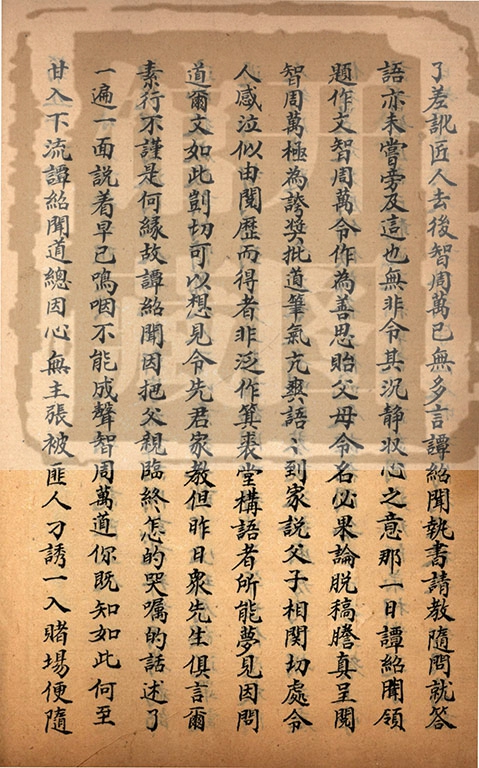 了差訛匠人去後智周萬已無多言譚紹聞執書請教隨問就答
語亦未嘗旁及這也無非令其沉静収心之意那一日譚紹聞領
題作文智周萬令作為善思貽父母令名必果論脱稿謄真呈閱
智周萬極為誇奬批道筆氣亢爽語〻到家説父子相関切處令
人感泣似由閱歷而得者非泛作箕裘堂構語者所能夢見因問
道爾文如此剴切可以想見令先君家教但昨日衆先生俱言爾
素行不謹是何縁故譚紹聞因把父親臨終怎的哭嘱的話述了
一遍一面説着早已嗚咽不能成聲智周萬道你既知如此何至
甘入下流譚紹聞道總因心無主張被匪人刁誘一入賭場便隨